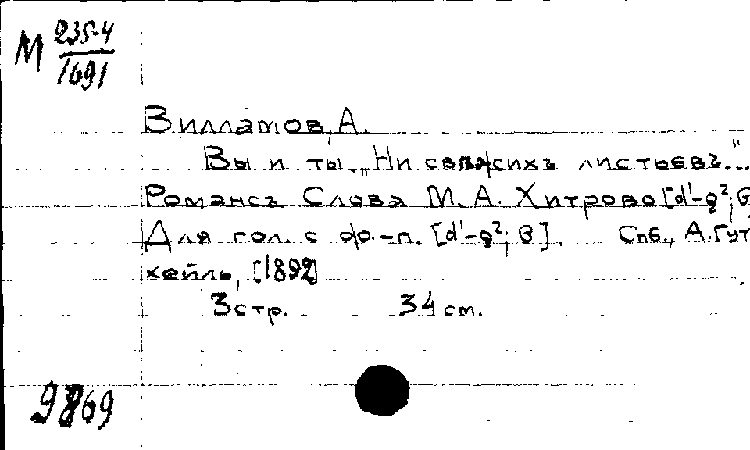 М 235-4
1691
Вилламов, А.
Вы и ты. „Ни свежихъ листьевъ..."
Романсъ Слова М. А. Хитрово [d'-g²; G
Для гол. с ф-п. [d'-g²; G]. Спб., А. Гут
хейль, [1892]
3 стр. 34 см.
9869